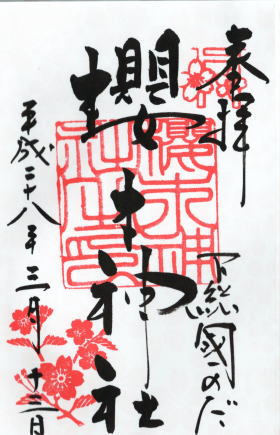 奉拝
下総國のだ
櫻木神社
櫻木神
社之印
平成二十八年三月十三日